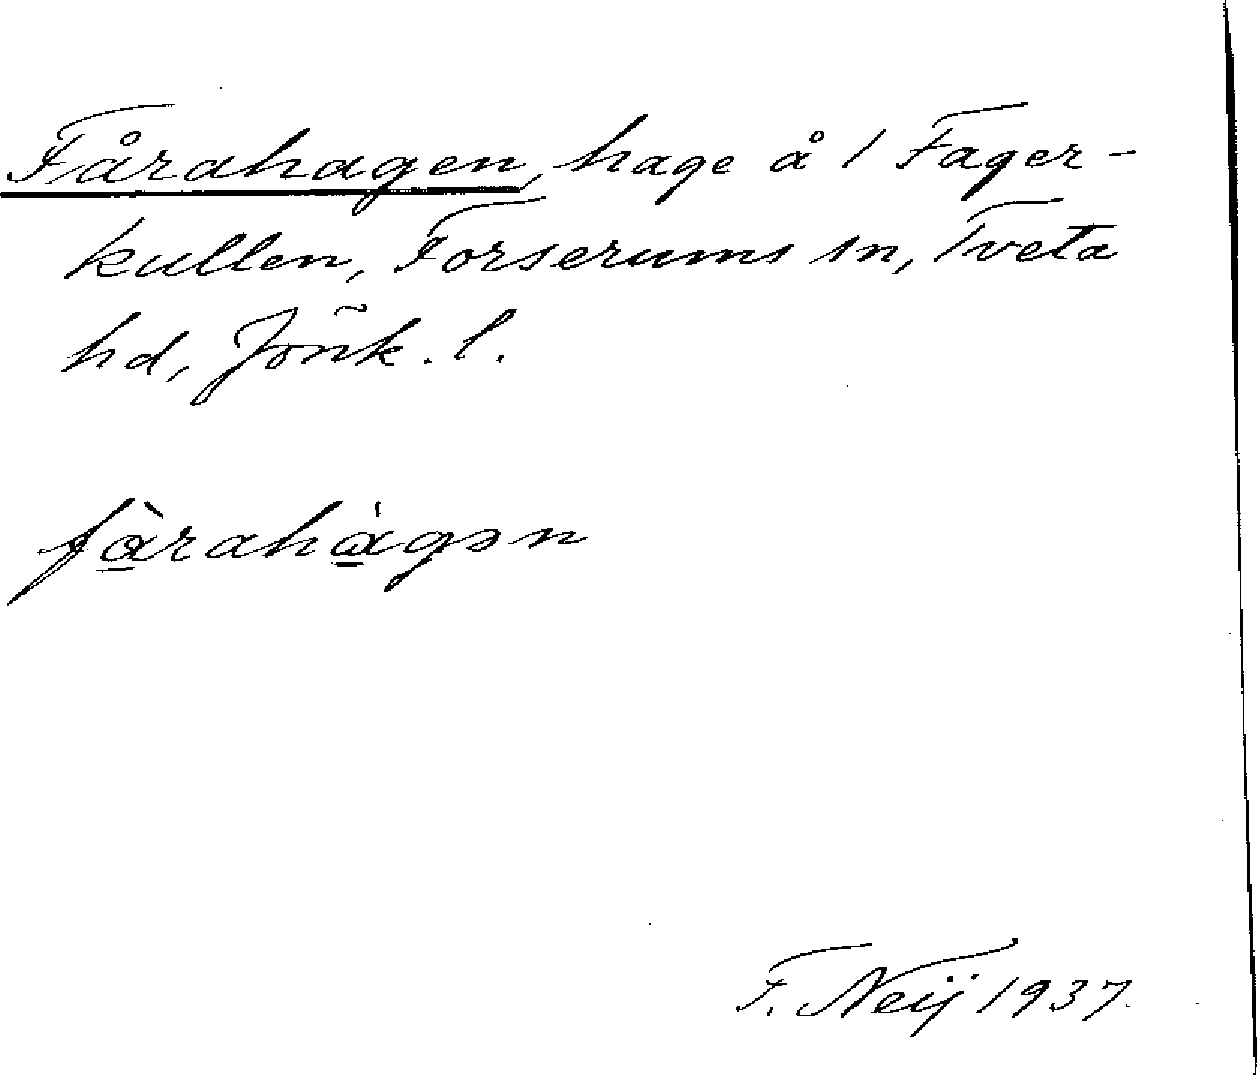 Fårahagen, hage å 1 Fager-
kullen, Forserums sn, Tveta
hd, Jönk. l.
fàrahágən
F. Neij 1937.